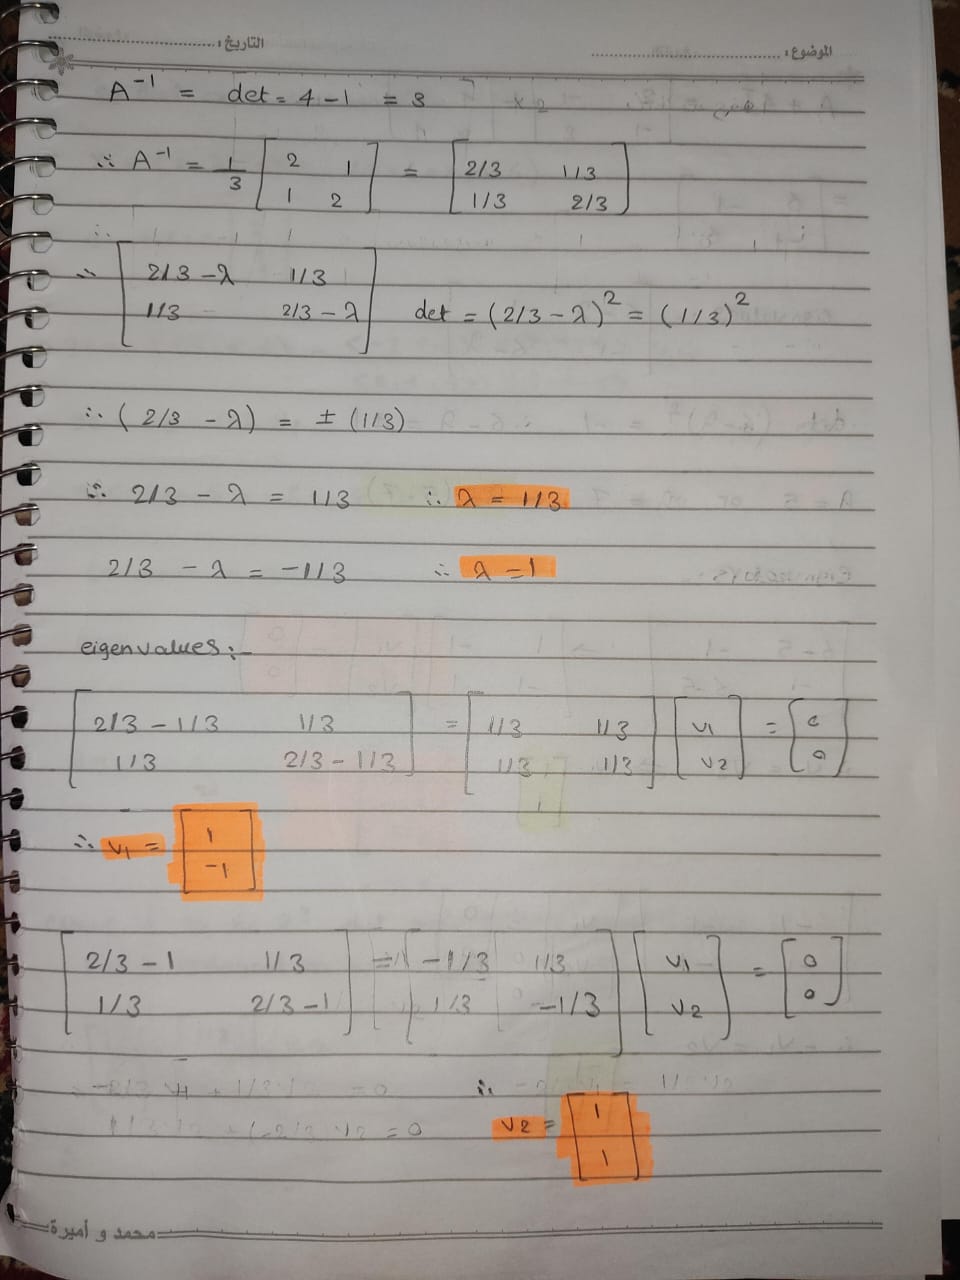 الموضوع: التاريخ:
A⁻¹ = det = 4 - 1 = 3
∴ A⁻¹ = 1/3 [2 1 = [2/3 1/3
1 2] 1/3 2/3]
∴
∴ [2/3 - λ 1/3
1/3 2/3 - λ] det = (2/3 - λ)² = (1/3)²
∴ (2/3 - λ) = ± (1/3)
∴ 2/3 - λ = 1/3 ∴ λ = 1/3
2/3 - λ = -1/3 ∴ λ = 1
eigenvalues:-
[2/3 - 1/3 1/3 = [1/3 1/3 [v1 = [0
1/3 2/3 - 1/3] 1/3 1/3] v2] 0]
∴ v1 = [1
-1]
[2/3 - 1 1/3 = [-1/3 1/3 [v1 = [0
1/3 2/3 - 1] 1/3 -1/3] v2] 0]
∴
v2 = [1
1]
محمد و أميرة